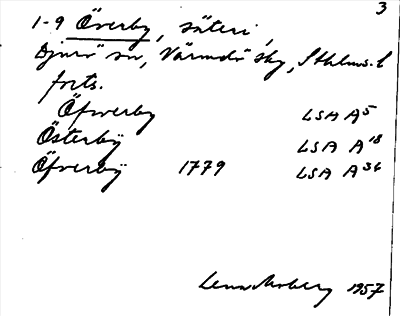 3
1-9 Överby, säteri,
Djurö sn, Värmdö skg, Sthlms. l
forts.
Öfwerby LSA A5
Österbÿ LSA A18
Öfverbÿ 1779 LSA A36
1957